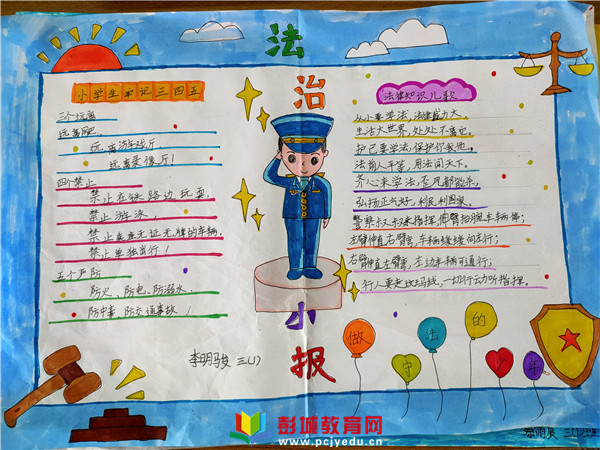 法治小报
小学生牢记三四五
三个远离
远离网吧、
远离游戏厅
远离录像厅!
四个禁止
禁止在铁路边玩耍、
禁止游泳、
禁止乘座无证无牌的车辆,
禁止单独出行!
五个严防
防火、防电、防溺水、
防中毒、防交通事故!
李明骏 三(1)
法律知识儿歌
从小要学法,法律威力大,
生活大世界,处处不离它。
护己要学法,保护你我他。
法前人平等,用法问天下。
齐心来学法,歪风都能杀,
弘扬正气好,利民利国家。
警察叔叔来指挥,伸臂抬腕车辆停;
左臂伸直右臂去,车辆缓缓向右行;
右臂伸直左臂去,左边车辆可通行;
行人要走斑马线,一切行动听指挥。
做
守
法
的
三(1)班
彭城教育网
www.pcjyedu.cn